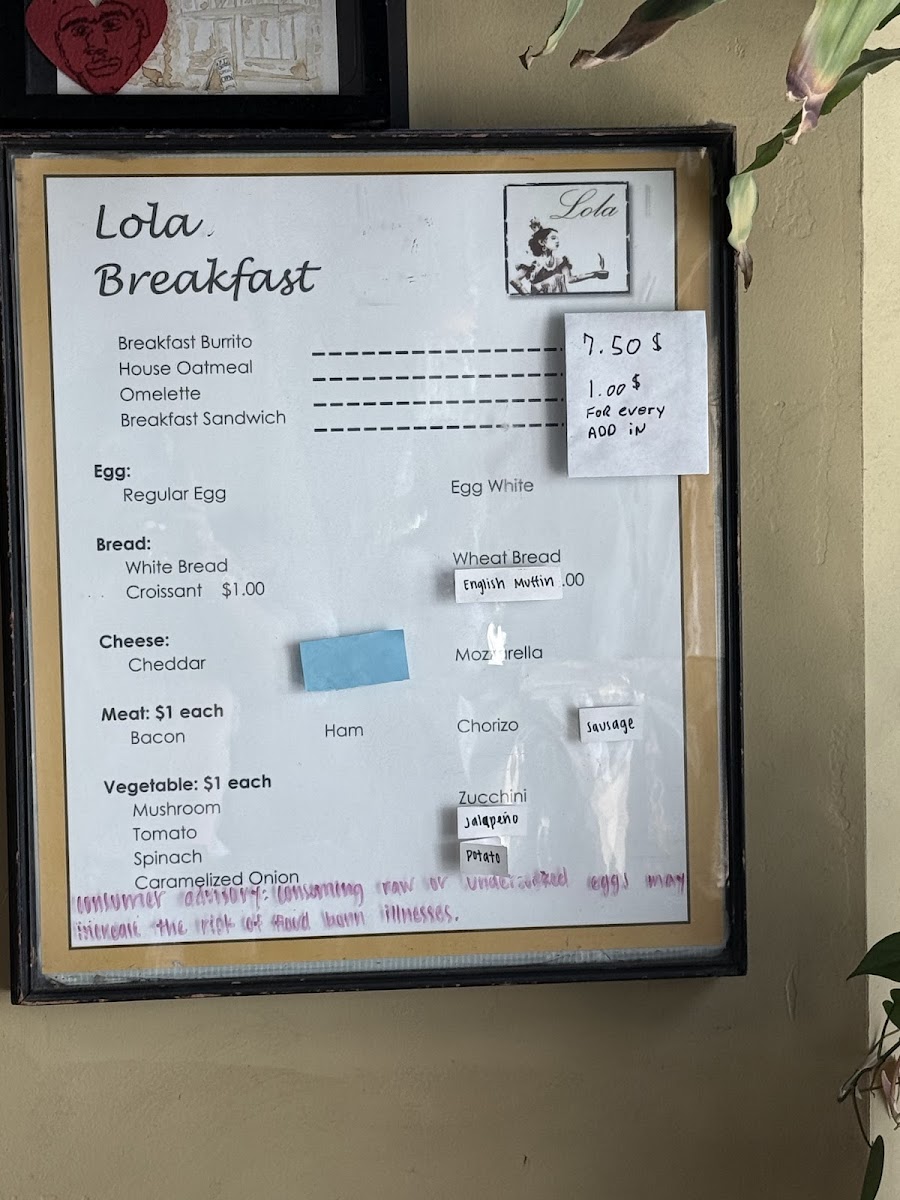 Lola
Breakfast
Lola
Breakfast Burrito
House Oatmeal
Omelette
Breakfast Sandwich
7.50 $
1.00 $
FOR every
ADD iN
Egg:
Regular Egg
Egg White
Bread:
White Bread
Wheat Bread
Croissant $1.00
English Muffin .00
Cheese:
Cheddar
Mozzarella
Meat: $1 each
Bacon
Ham
Chorizo
sausage
Vegetable: $1 each
Mushroom
Zucchini
Tomato
Jalapeño
Spinach
Potato
Caramelized Onion
consumer advisory: consuming raw or undercooked eggs may
increase the risk of food born illnesses.